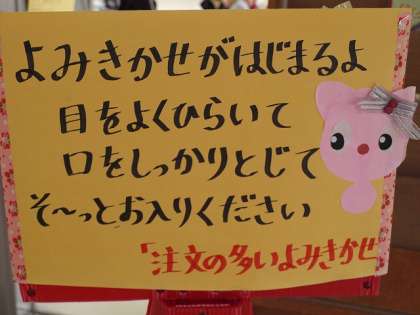 よみきかせがはじまるよ
目をよくひらいて
口をしっかりとじて
そ〜っとお入りください
「注文の多いよみきかせ